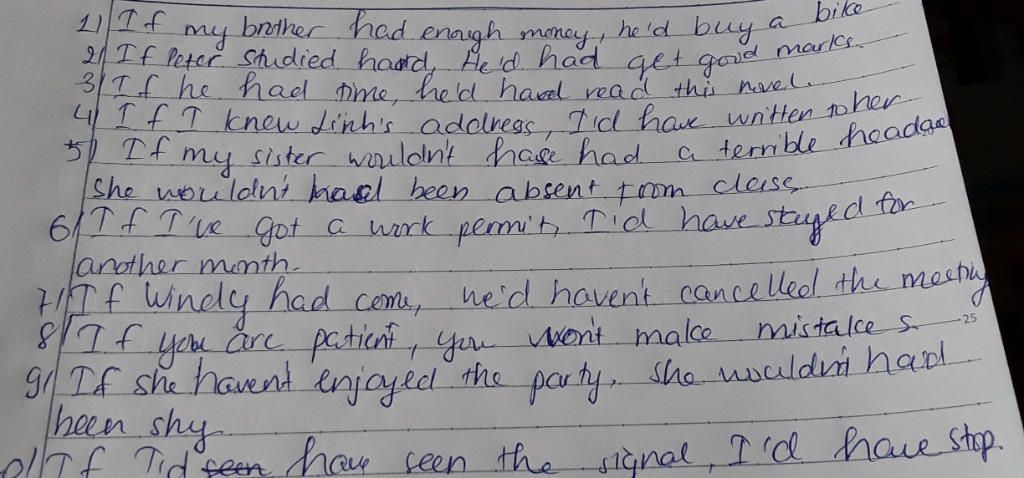 1) If my brother had enough money, he'd buy a bike
2) If Peter studied hard, He'd had get good marks.
3) If he had time, he'd have read this novel.
4) If I knew Linh's address, I'd have written to her
5) If my sister wouldn't have had a terrible
she wouldn't been absent from class
6) If I've got a work permit, I'd have stayed for
another month.
7) If Windy had come, we'd haven't cancelled the meeting
8) If you are patient, you won't make mistakes.
25
9) If she haven't enjoyed the party, she wouldn't had
been shy
If I'd have seen the signal, I'd have stop.